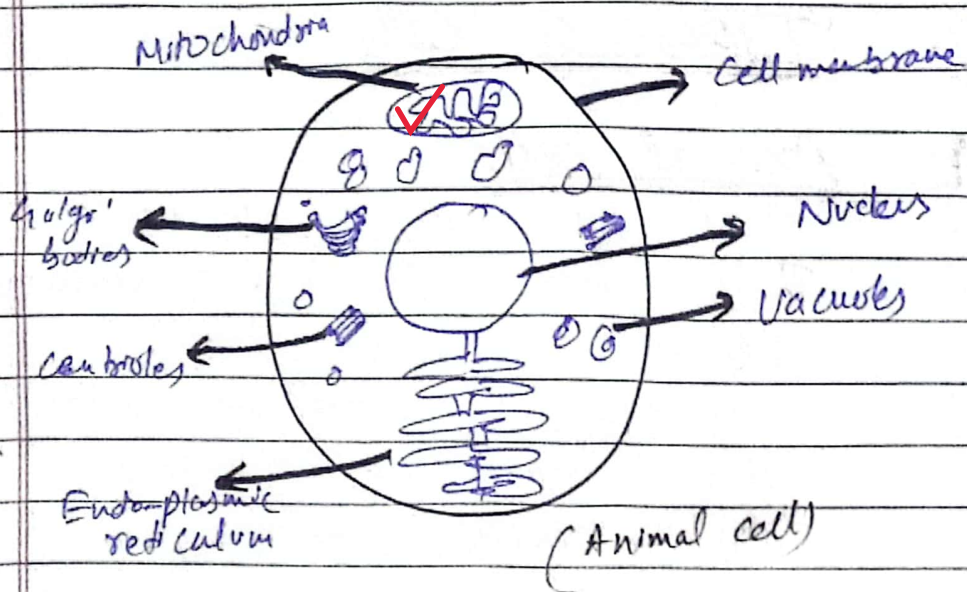 Mitochondria
Cell membrane
Golgi
bodies
Nucleus
Vacuoles
Centrioles
Endo-plasmic
rediculum
(Animal cell)